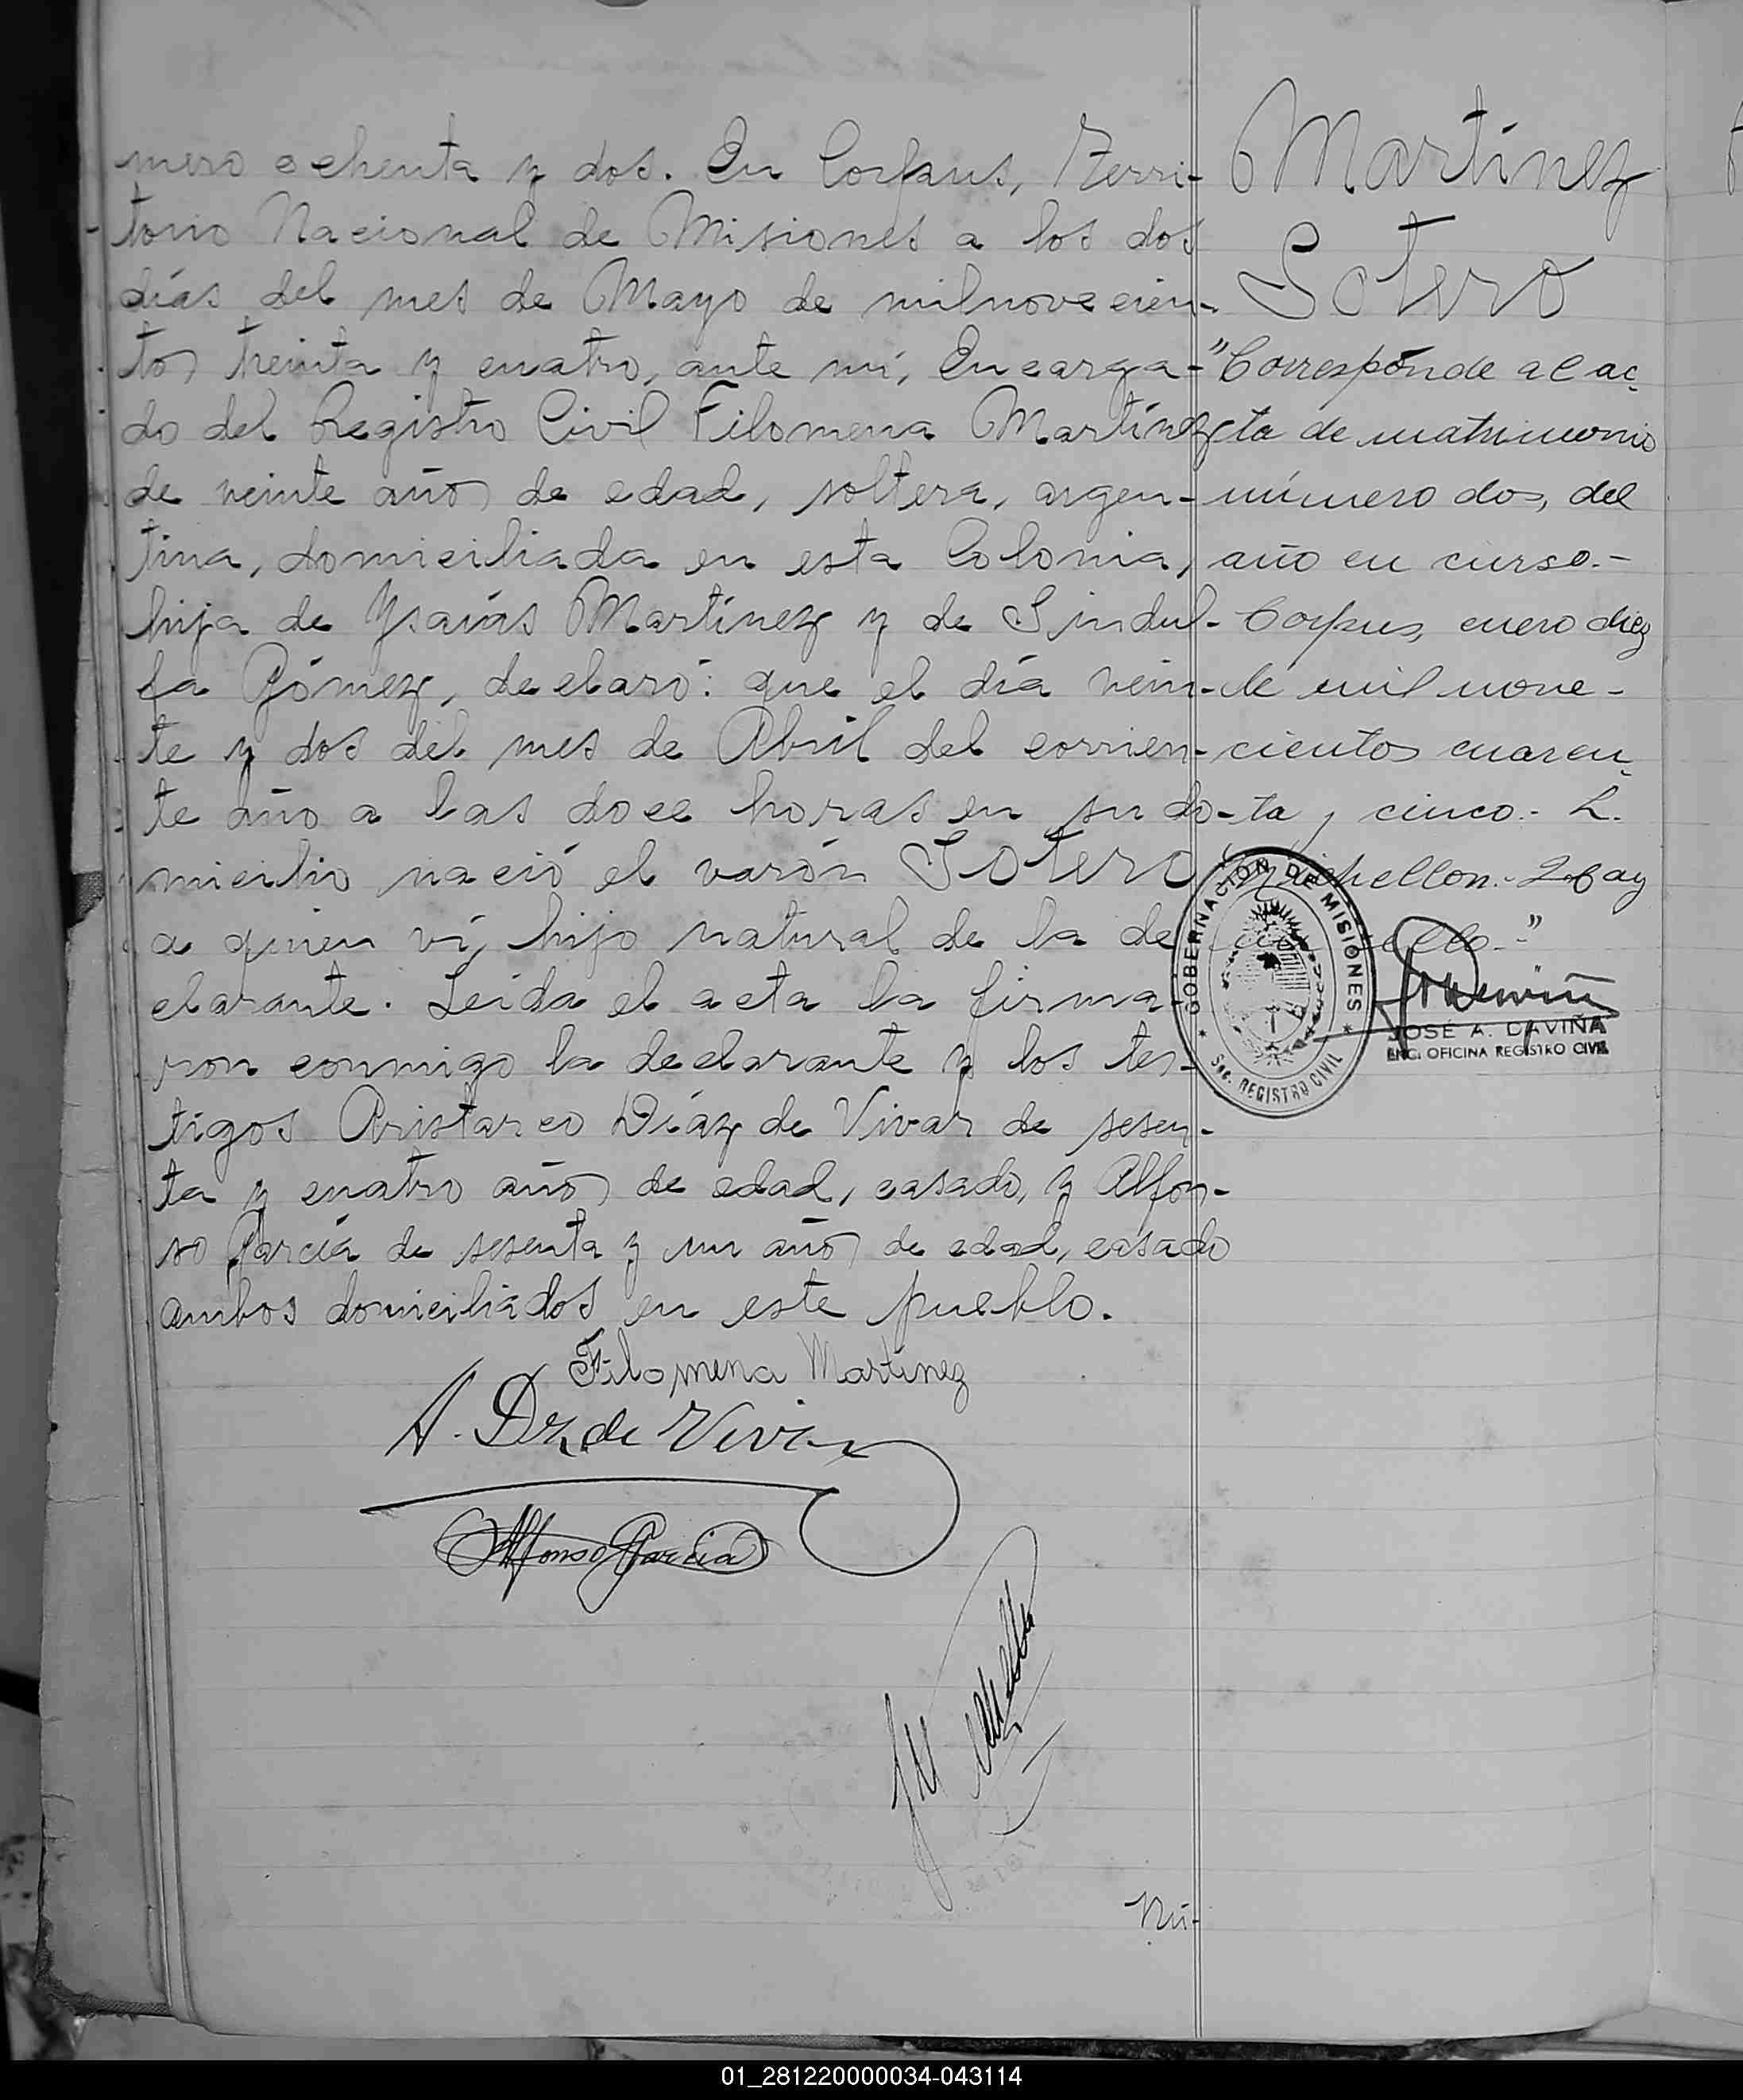 mero ochenta y dos. En Corpus, Terri-
torio Nacional de Misiones a los dos
días del mes de Mayo de milnovecien-
tos treinta y cuatro, ante mí, Encarga-
do del Registro Civil Filomena Martínez
de veinte años de edad, soltera, argen-
tina, domiciliada en esta Colonia,
hija de Ysaías Martínez y de Sindul-
fa Gómez, declaró: que el día vein-
te y dos del mes de Abril del corrien-
te año a las doce horas en su do-
micilio nació el varón Sotero
a quien ví, hijo natural de la de
clarante. Leída el acta la firma-
ron conmigo la declarante y los tes-
tigos Aristarco Díaz de Vivar de sesen-
ta y cuatro años de edad, casado, y Alfon-
so García de sesenta y un años de edad, casado
ambos domiciliados en este pueblo.
Filomena Martinez
A. Dz. de Vivar
Alfonso Garcia
Nú-
Martínez
Sotero
"Corresponde al ac
ta de matrimonio
número dos, del
año en curso.-
Corpus, enero diez
de mil nove-
cientos cuaren
ta y cinco.- L.
Michellon.- Hay
sello.-"
GOBERNACION DE MISIONES
Sec. REGISTRO CIVIL
JOSÉ A. DAVIÑA
ENC. OFICINA REGISTRO CIVIL
01_281220000034-043114